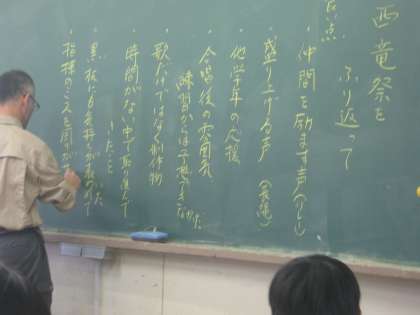 西竜祭を
ふり返って
良い点
・仲間を励ます声(少し)
・盛り上げる声
・他学年の応援
・合唱後の雰囲気
練習からは予想できなかった
・歌だけではなく制作物
・時間がない中で取り進んで
いたこと
・黒板にも気持ちが
・指揮のことを